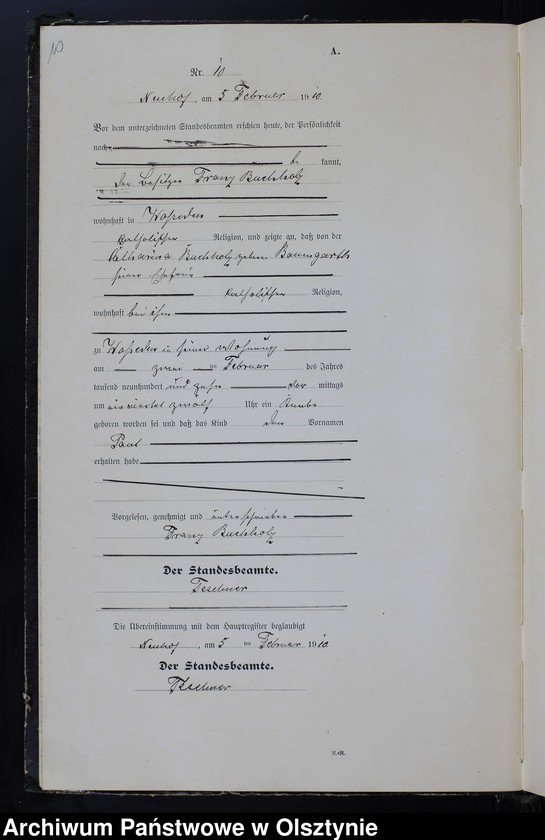 10
A.
Nr. 10
Neuhof, am 5 Februar 1910
Vor dem unterzeichneten Standesbeamten erschien heute, der Persönlichkeit
nach
be kannt,
der Besitzer Franz Buchholz
wohnhaft in
katholischer Religion, und zeigte an, daß von der
Katharina Buchholz geborn Baumgarth
seiner Ehefrau
katholischer Religion,
wohnhaft bei ihm
zu in seiner Wohnung
am zwei ten Februar des Jahres
tausend neunhundert und zehn vor mittags
um einviertel zwölf Uhr ein Knabe
geboren worden sei und daß das Kind den Vornamen
Paul
erhalten habe
Vorgelesen, genehmigt und unterschrieben
Franz Buchholz
Der Standesbeamte.
Teschner
Die Übereinstimmung mit dem Hauptregister beglaubigt
Neuhof, am 5 ten Februar 1910
Der Standesbeamte.
Teschner
Archiwum Państwowe w Olsztynie